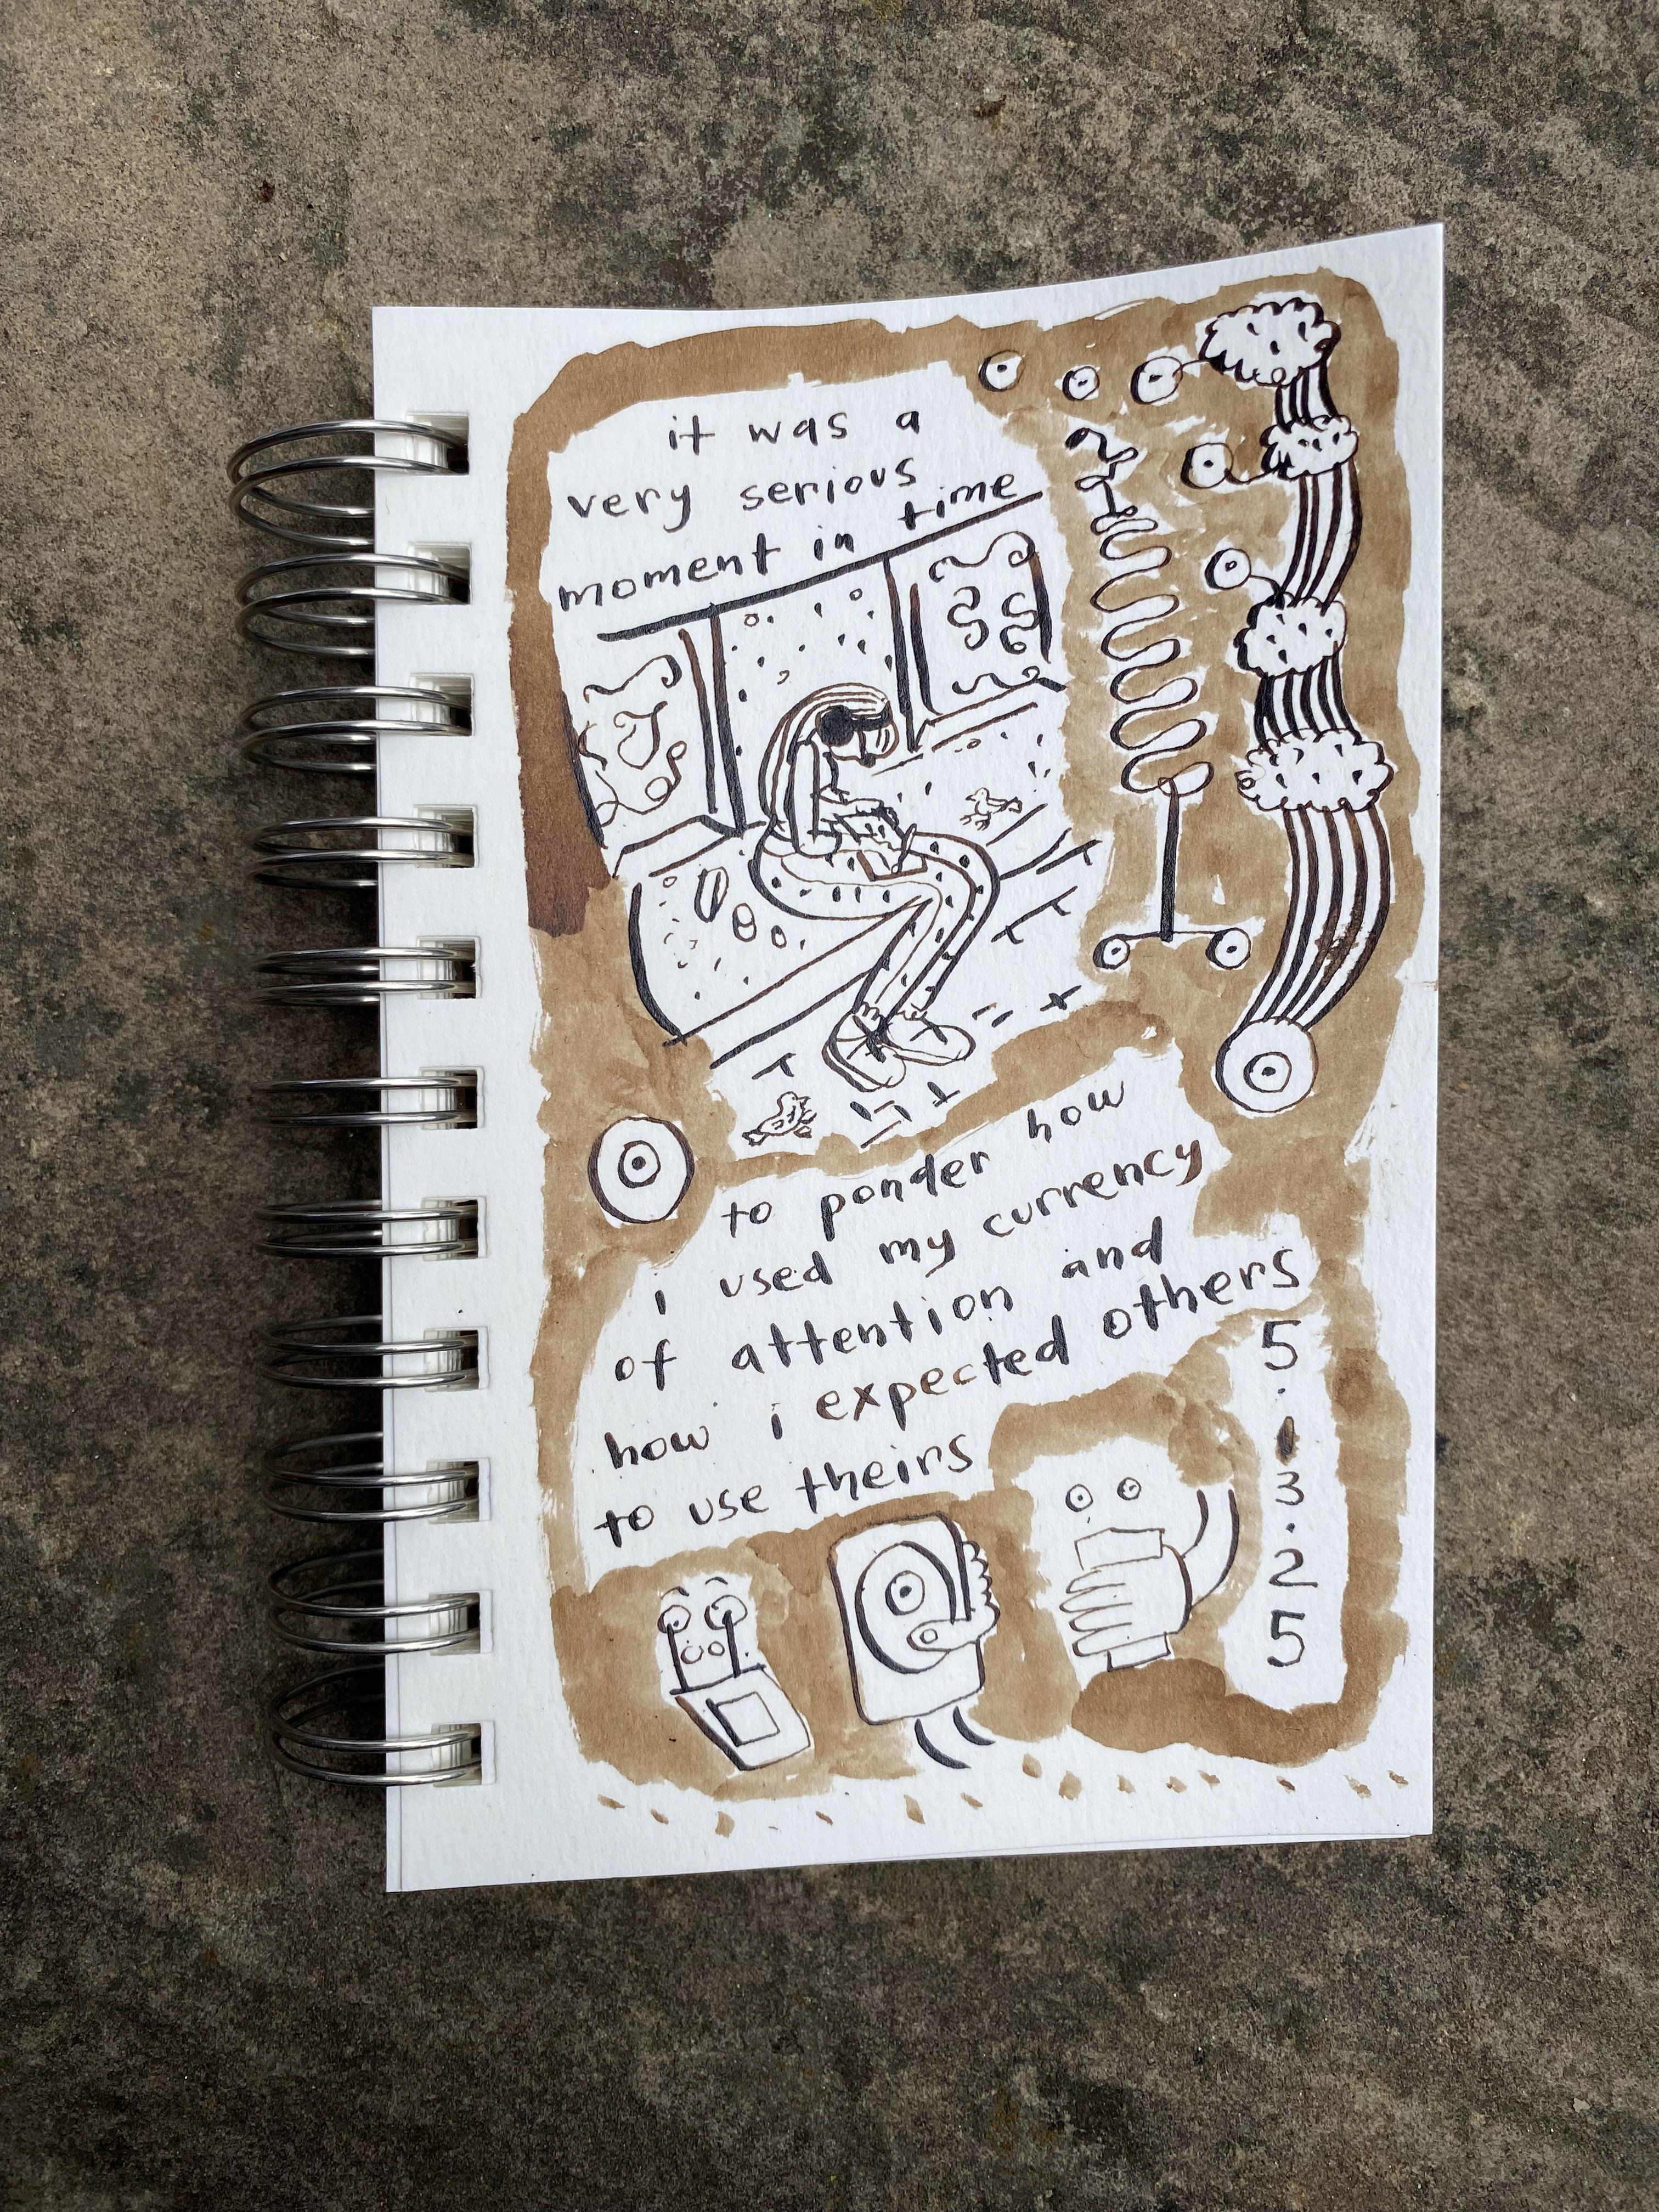 it was a
very serious
moment in time
to ponder how
i used my currency
of attention and
how i expected others
to use theirs
5
.
3
.
2
5